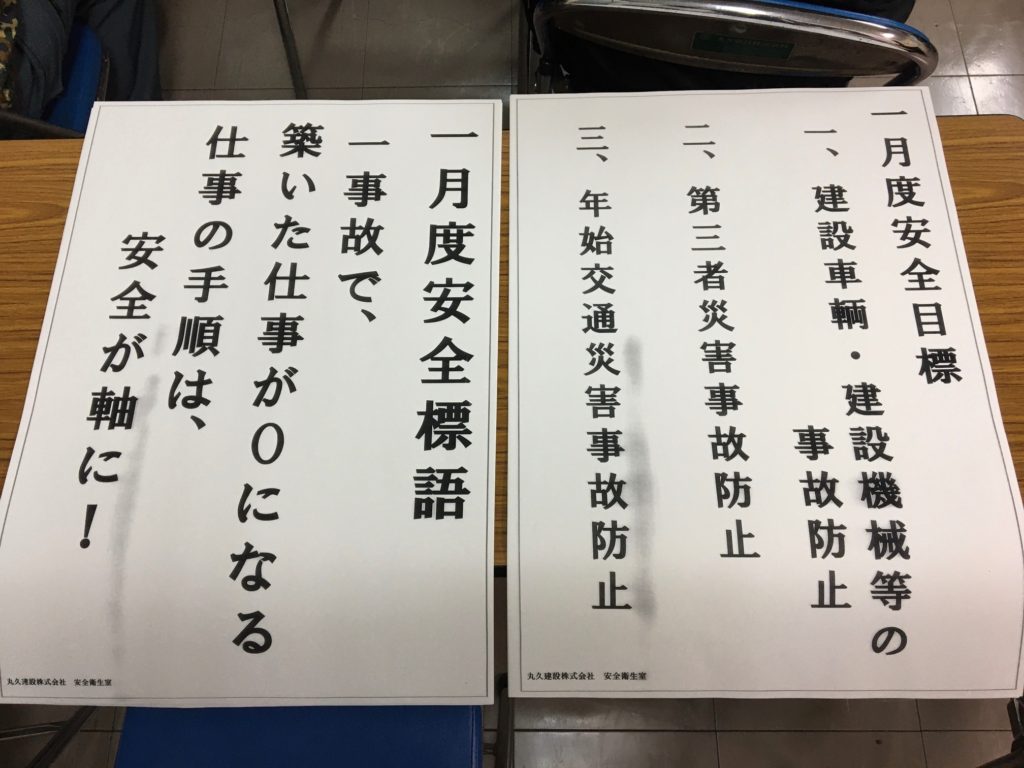 一月度安全目標
一、建設車輌・建設機械等の
事故防止
二、第三者災害事故防止
三、年始交通災害事故防止
丸久建設株式会社　安全衛生室
一月度安全標語
一事故で、
築いた仕事が０になる
仕事の手順は、
安全が軸に！
丸久建設株式会社　安全衛生室